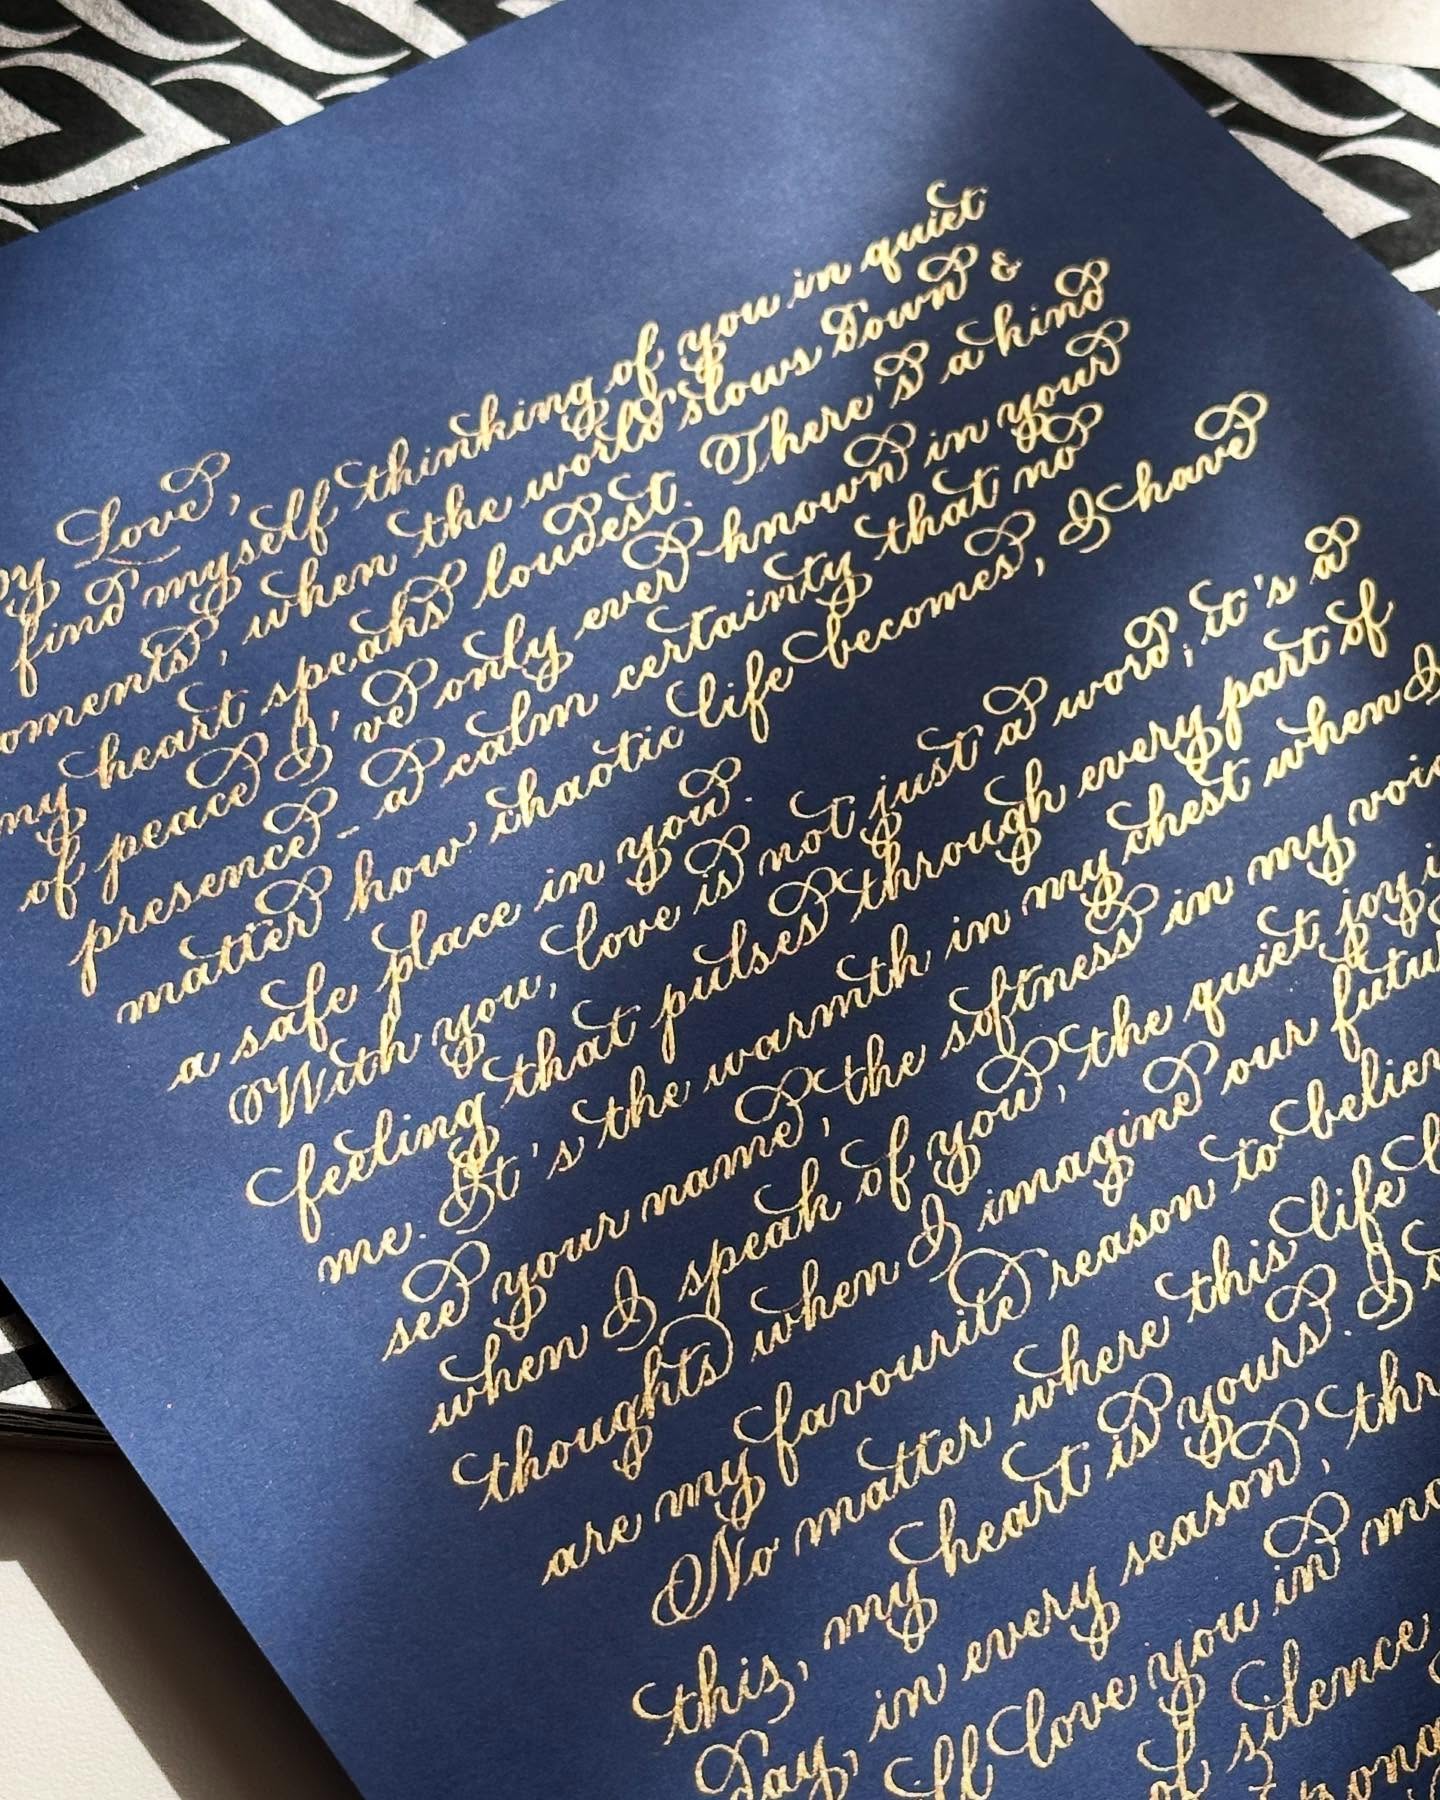 Love,
find myself thinking of you in quiet
moments, when the world slows down &
my heart speaks loudest. There's a kind
of peace I've only ever known in your
presence - a calm certainty that no
matter how chaotic life becomes, I have
a safe place in you.
With you, love is not just a word; it's a
feeling that pulses through every part of
me. It's the warmth in my chest when I
see your name, the softness in my voic
when I speak of you, the quiet joy i
thoughts when I imagine our futu
are my favourite reason to believ
No matter where this life
this, my heart is yours. I
day, in every season, thr
love you in mo
of silence